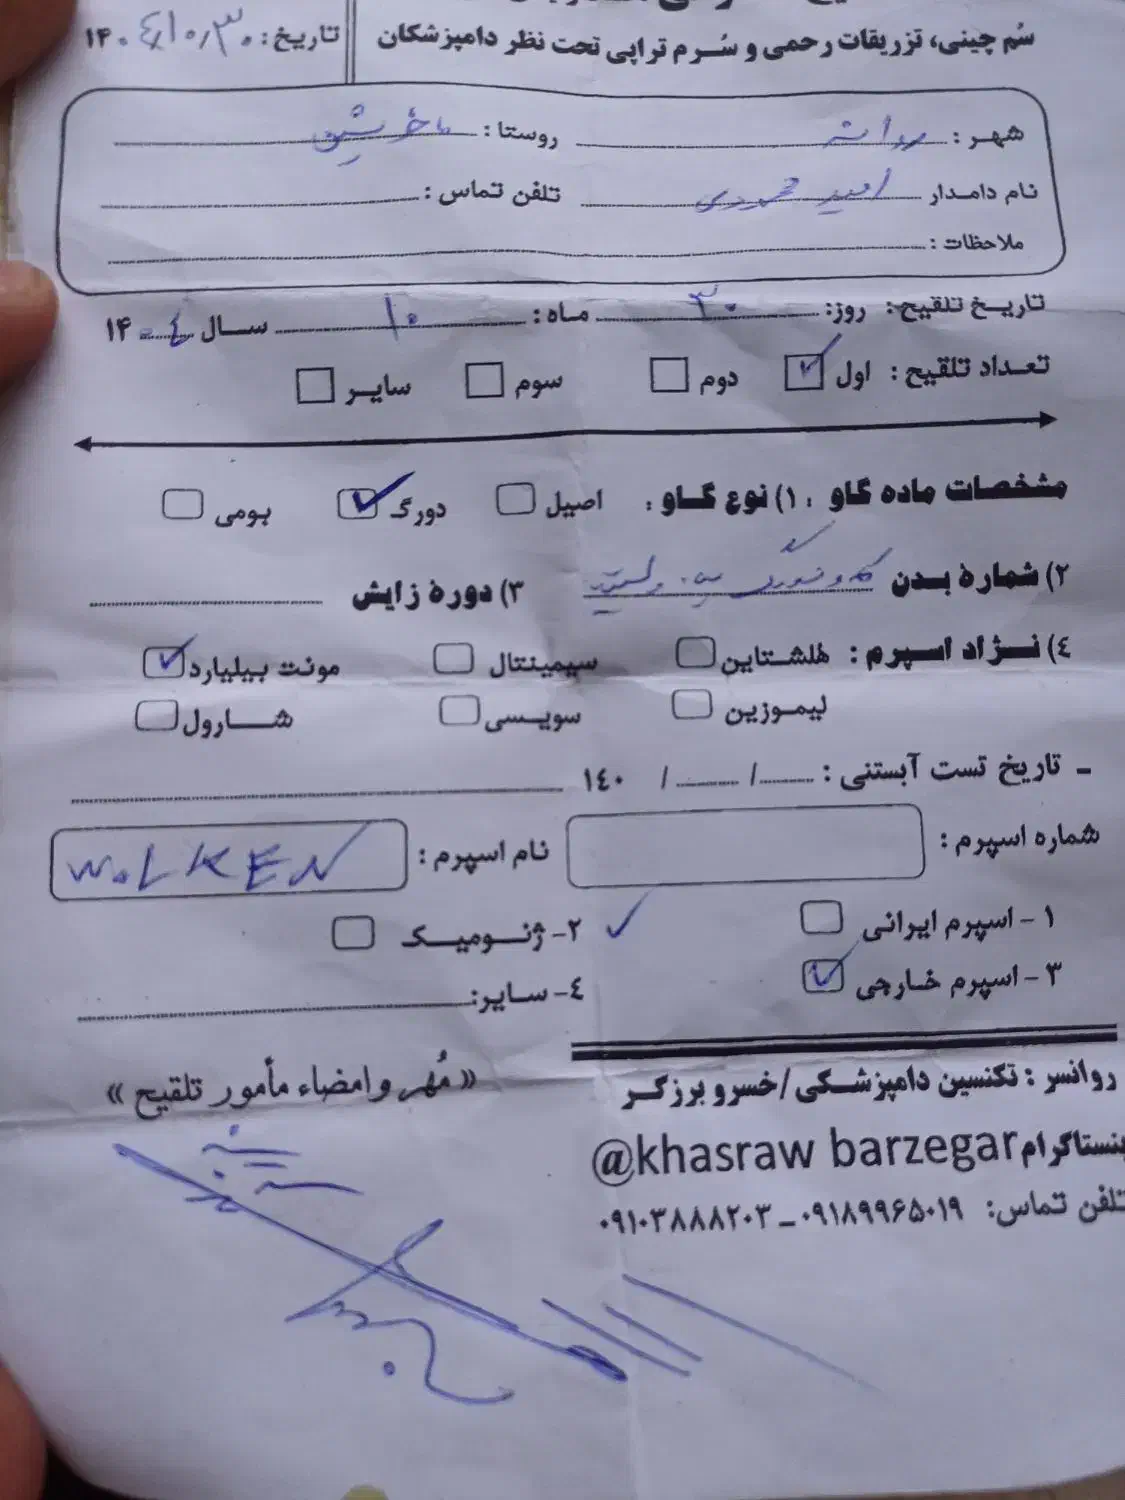 سُم چینی، تزریقات رحمی و سُرم تراپی تحت نظر دامپزشکان
تاریخ: ۱۴۰٤/۱۰/۳۰
شهر: روانسر روستا:
نام دامدار امید محمودی تلفن تماس:
ملاحظات:
تاریخ تلقیح: روز: ۳۰ ماه: ۱۰ سال ۱۴۰٤
تعداد تلقیح: اول ✓ دوم سوم سایر
مشخصات ماده گاو: ۱) نوع گاو: اصیل دورگ ✓ بومی
۲) شماره بدن ۳) دورهٔ زایش
٤) نژاد اسپرم: هُلشتاین سیمینتال مونت بیلیارد ✓
لیموزین سویسی شارول
ـ تاریخ تست آبستنی: / / ۱٤۰
شماره اسپرم: نام اسپرم: WOLKEN
۱ - اسپرم ایرانی ✓ ۲- ژنومیک
۳ - اسپرم خارجی ✓ ٤- سایر:
روانسر: تکنسین دامپزشکی/خسرو برزگر
«مُهر و امضاء مأمور تلقیح»
ینستاگرام @khasraw barzegar
تلفن تماس: ۰۹۱۸۹۹۶۵۰۱۹ ـ ۰۹۱۰۳۸۸۸۲۰۳